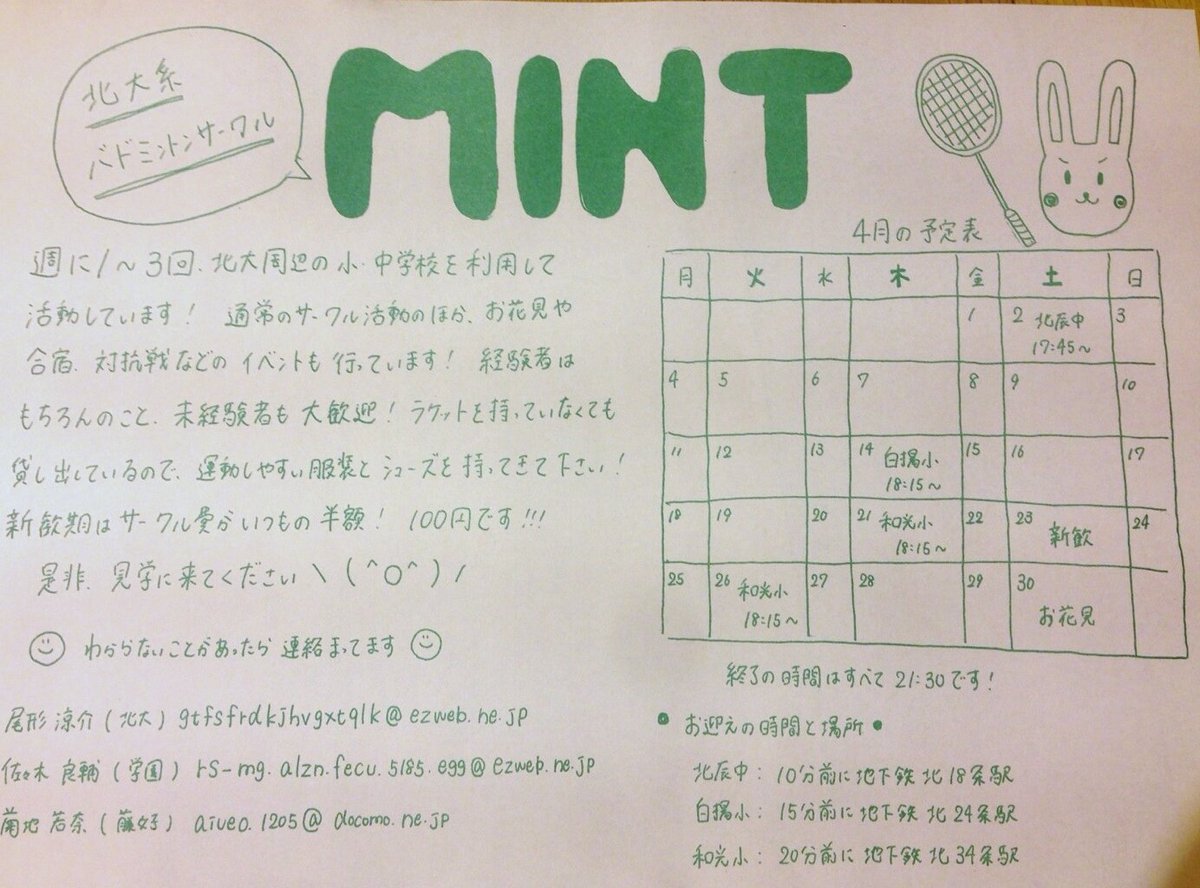 北大系
バドミントンサークル
MINT
週に1～3回、北大周辺の小・中学校を利用して
活動しています！ 通常のサークル活動のほか、お花見や
合宿、対抗戦などのイベントも行っています！ 経験者は
もちろんのこと、未経験者も大歓迎！ラケットを持っていなくても
貸し出しているので、運動しやすい服装とシューズを持ってきて下さい！
新歓期はサークル費がいつもの半額！ 100円です!!!
是非、見学に来てください \(^O^)/
わからないことがあったら連絡まってます
尾形 涼介（北大）gtfsfrdkjhvgxtqlk@ezweb.ne.jp
佐々木 良輔（学園）rs-mg.alzn.fecu.5185.egg@ezweb.ne.jp
菊地 若奈（藤女子）aiueo.1205@docomo.ne.jp
4月の予定表
月 火 水 木 金 土 日
1 2 北辰中 3
17:45～
4 5 6 7 8 9 10
11 12 13 14 白楊小 15 16 17
18:15～
18 19 20 21 和光小 22 23 新歓 24
18:15～
25 26 和光小 27 28 29 30 お花見
18:15～
終了の時間はすべて21:30です！
● お迎えの時間と場所 ●
北辰中： 10分前に地下鉄 北18条駅
白楊小： 15分前に地下鉄 北24条駅
和光小： 20分前に地下鉄 北34条駅